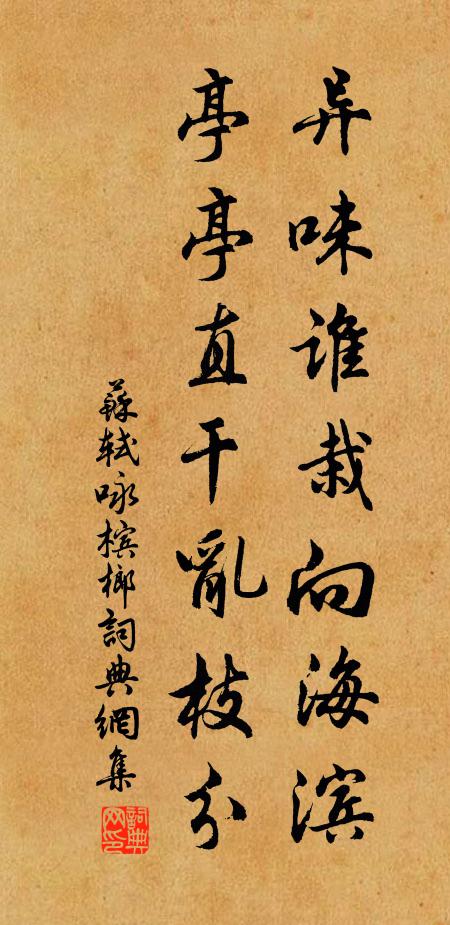 异味谁栽向海滨
亭亭直干亂枝分
蘇轼咏槟榔詞典網集
詞典網印